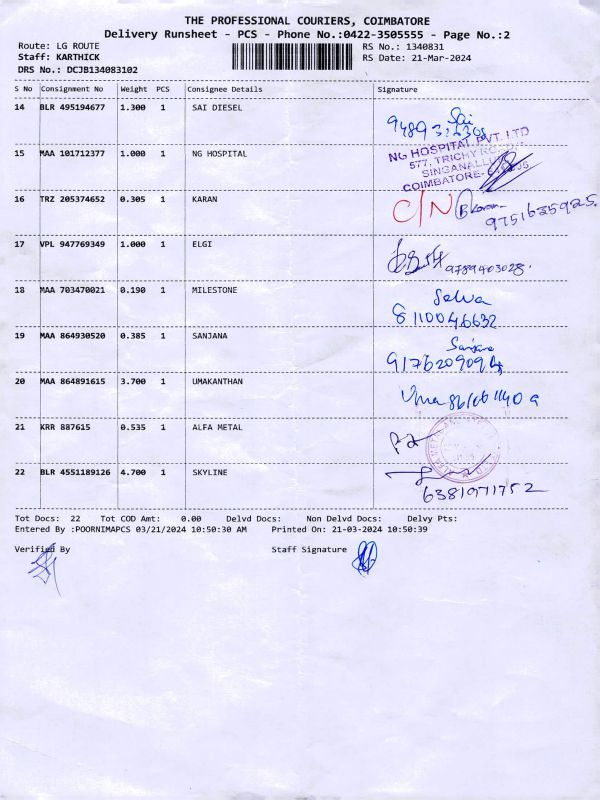 THE PROFESSIONAL COURIERS, COIMBATORE
Delivery Runsheet - PCS - Phone No.:0422-3505555 - Page No.:2
Route: LG ROUTE RS No.: 1340831
Staff: KARTHICK RS Date: 21-Mar-2024
DRS No.: DCJB134083102
S No Consignment No Weight PCS Consignee Details Signature
14 BLR 495194677 1.300 1 SAI DIESEL Sai
15 MAA 101712377 1.000 1 NG HOSPITAL
NG HOSPITAL PVT. LTD
577, TRICHY
SINGANALL
COIMBATORE-
16 TRZ 205374652 0.305 1 KARAN C/N
9751635925.
17 VPL 947769349 1.000 1 ELGI 9789403028.
18 MAA 703470021 0.190 1 MILESTONE Selva
8110046632
19 MAA 864930520 0.385 1 SANJANA Sanjana
20 MAA 864891615 3.700 1 UMAKANTHAN Uma
21 KRR 887615 0.535 1 ALFA METAL
22 BLR 4551189126 4.700 1 SKYLINE
6381971752
Tot Docs: 22 Tot COD Amt: 0.00 Delvd Docs: Non Delvd Docs: Delvy Pts:
Entered By :POORNIMAPCS 03/21/2024 10:50:30 AM Printed On: 21-03-2024 10:50:39
Verified By Staff Signature